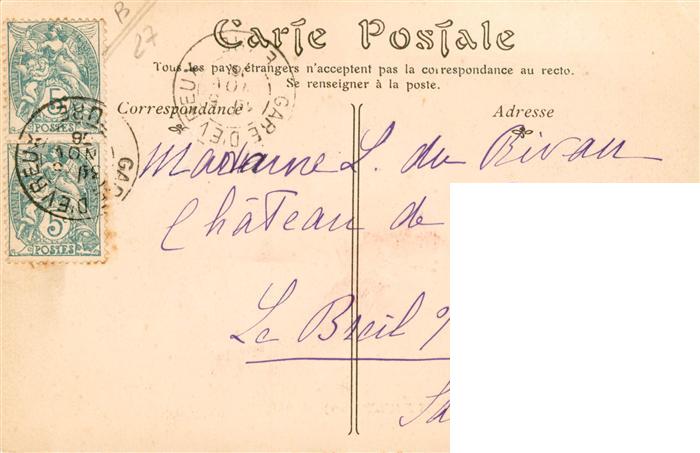 B
27
Carte Postale
Tous les pays étrangers n'acceptent pas la correspondance au recto.
Se renseigner à la poste.
Correspondance
Adresse
Madame L. du Rivau
Château de
Le Breil s/
Sa
5
POSTES
5
POSTES
GARE D'EVREUX
GARE D'EVREUX
EURE
NOV